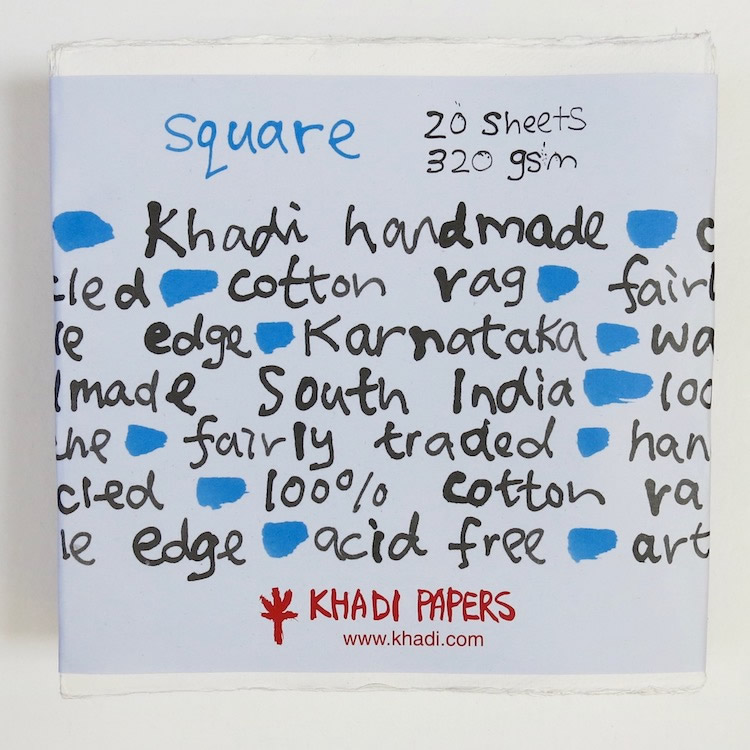 square
20 sheets
320 gsm
Khadi handmade
cotton rag fairl
edge Karnataka
made South India 100
fairly traded han
100% cotton ra
edge acid free art
KHADI PAPERS
www.khadi.com